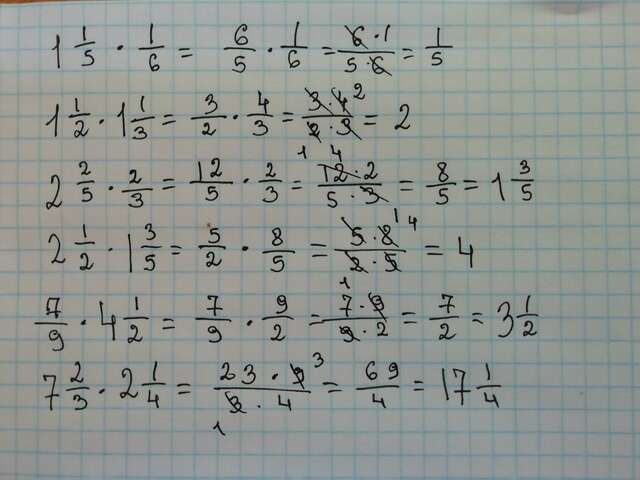 1 1/5 · 1/6 = 6/5 · 1/6 = 6·1/5·6 = 1/5
1 1/2 · 1 1/3 = 3/2 · 4/3 = 3·4 2/2·3 = 2
2 2/5 · 2/3 = 12/5 · 2/3 = 1 4 12·2/5·3 = 8/5 = 1 3/5
2 1/2 · 1 3/5 = 5/2 · 8/5 = 5·8 1 4/2·5 = 4
7/9 · 4 1/2 = 7/9 · 9/2 = 1 7·9/9·2 = 7/2 = 3 1/2
7 2/3 · 2 1/4 = 23·9 3/3·4 1 = 69/4 = 17 1/4